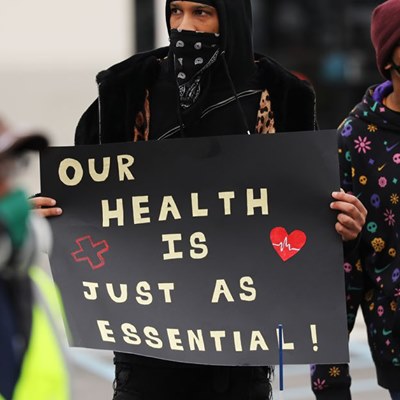 OUR
HEALTH
IS
JUST AS
ESSENTIAL!